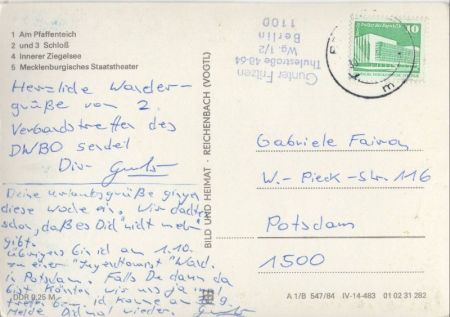 1 Am Pfaffenteich
2 und 3 Schloß
4 Innerer Ziegelsee
5 Mecklenburgisches Staatstheater
Herzliche Wander-
grüße vom 2.
Verbandstreffen des
DWBO sendet
Dir Gunter
Deine Urlaubsgrüße gingen
diese Woche ein. Wir dachten
schon, daß es Dich nicht mehr
gibt.
Übrigens bin ich am 1.10.
zu einer "Jugendtourist" Wand.
in Potsdam. Falls Du dann da
bist könnten wir uns ja
treffen. Ich komme am 30.9.
Melde Dich mal wieder. Gunter
DDR 0,25 M
BILD UND HEIMAT · REICHENBACH (VOGTL)
Gunter Fritzen
Thulestraße 48-64
Wg 1/2
Berlin
1100
10
Gabriele
W.-Pieck-Str. 116
Potsdam
1500
A 1/B 547/84 IV-14-483 01 02 31 282